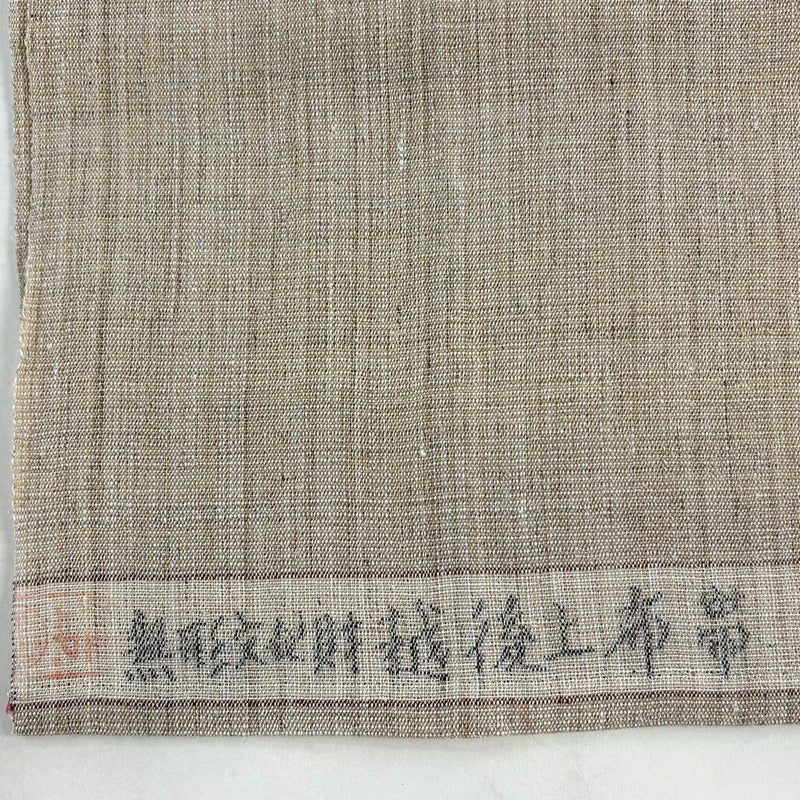 無形文化財越後上布帯